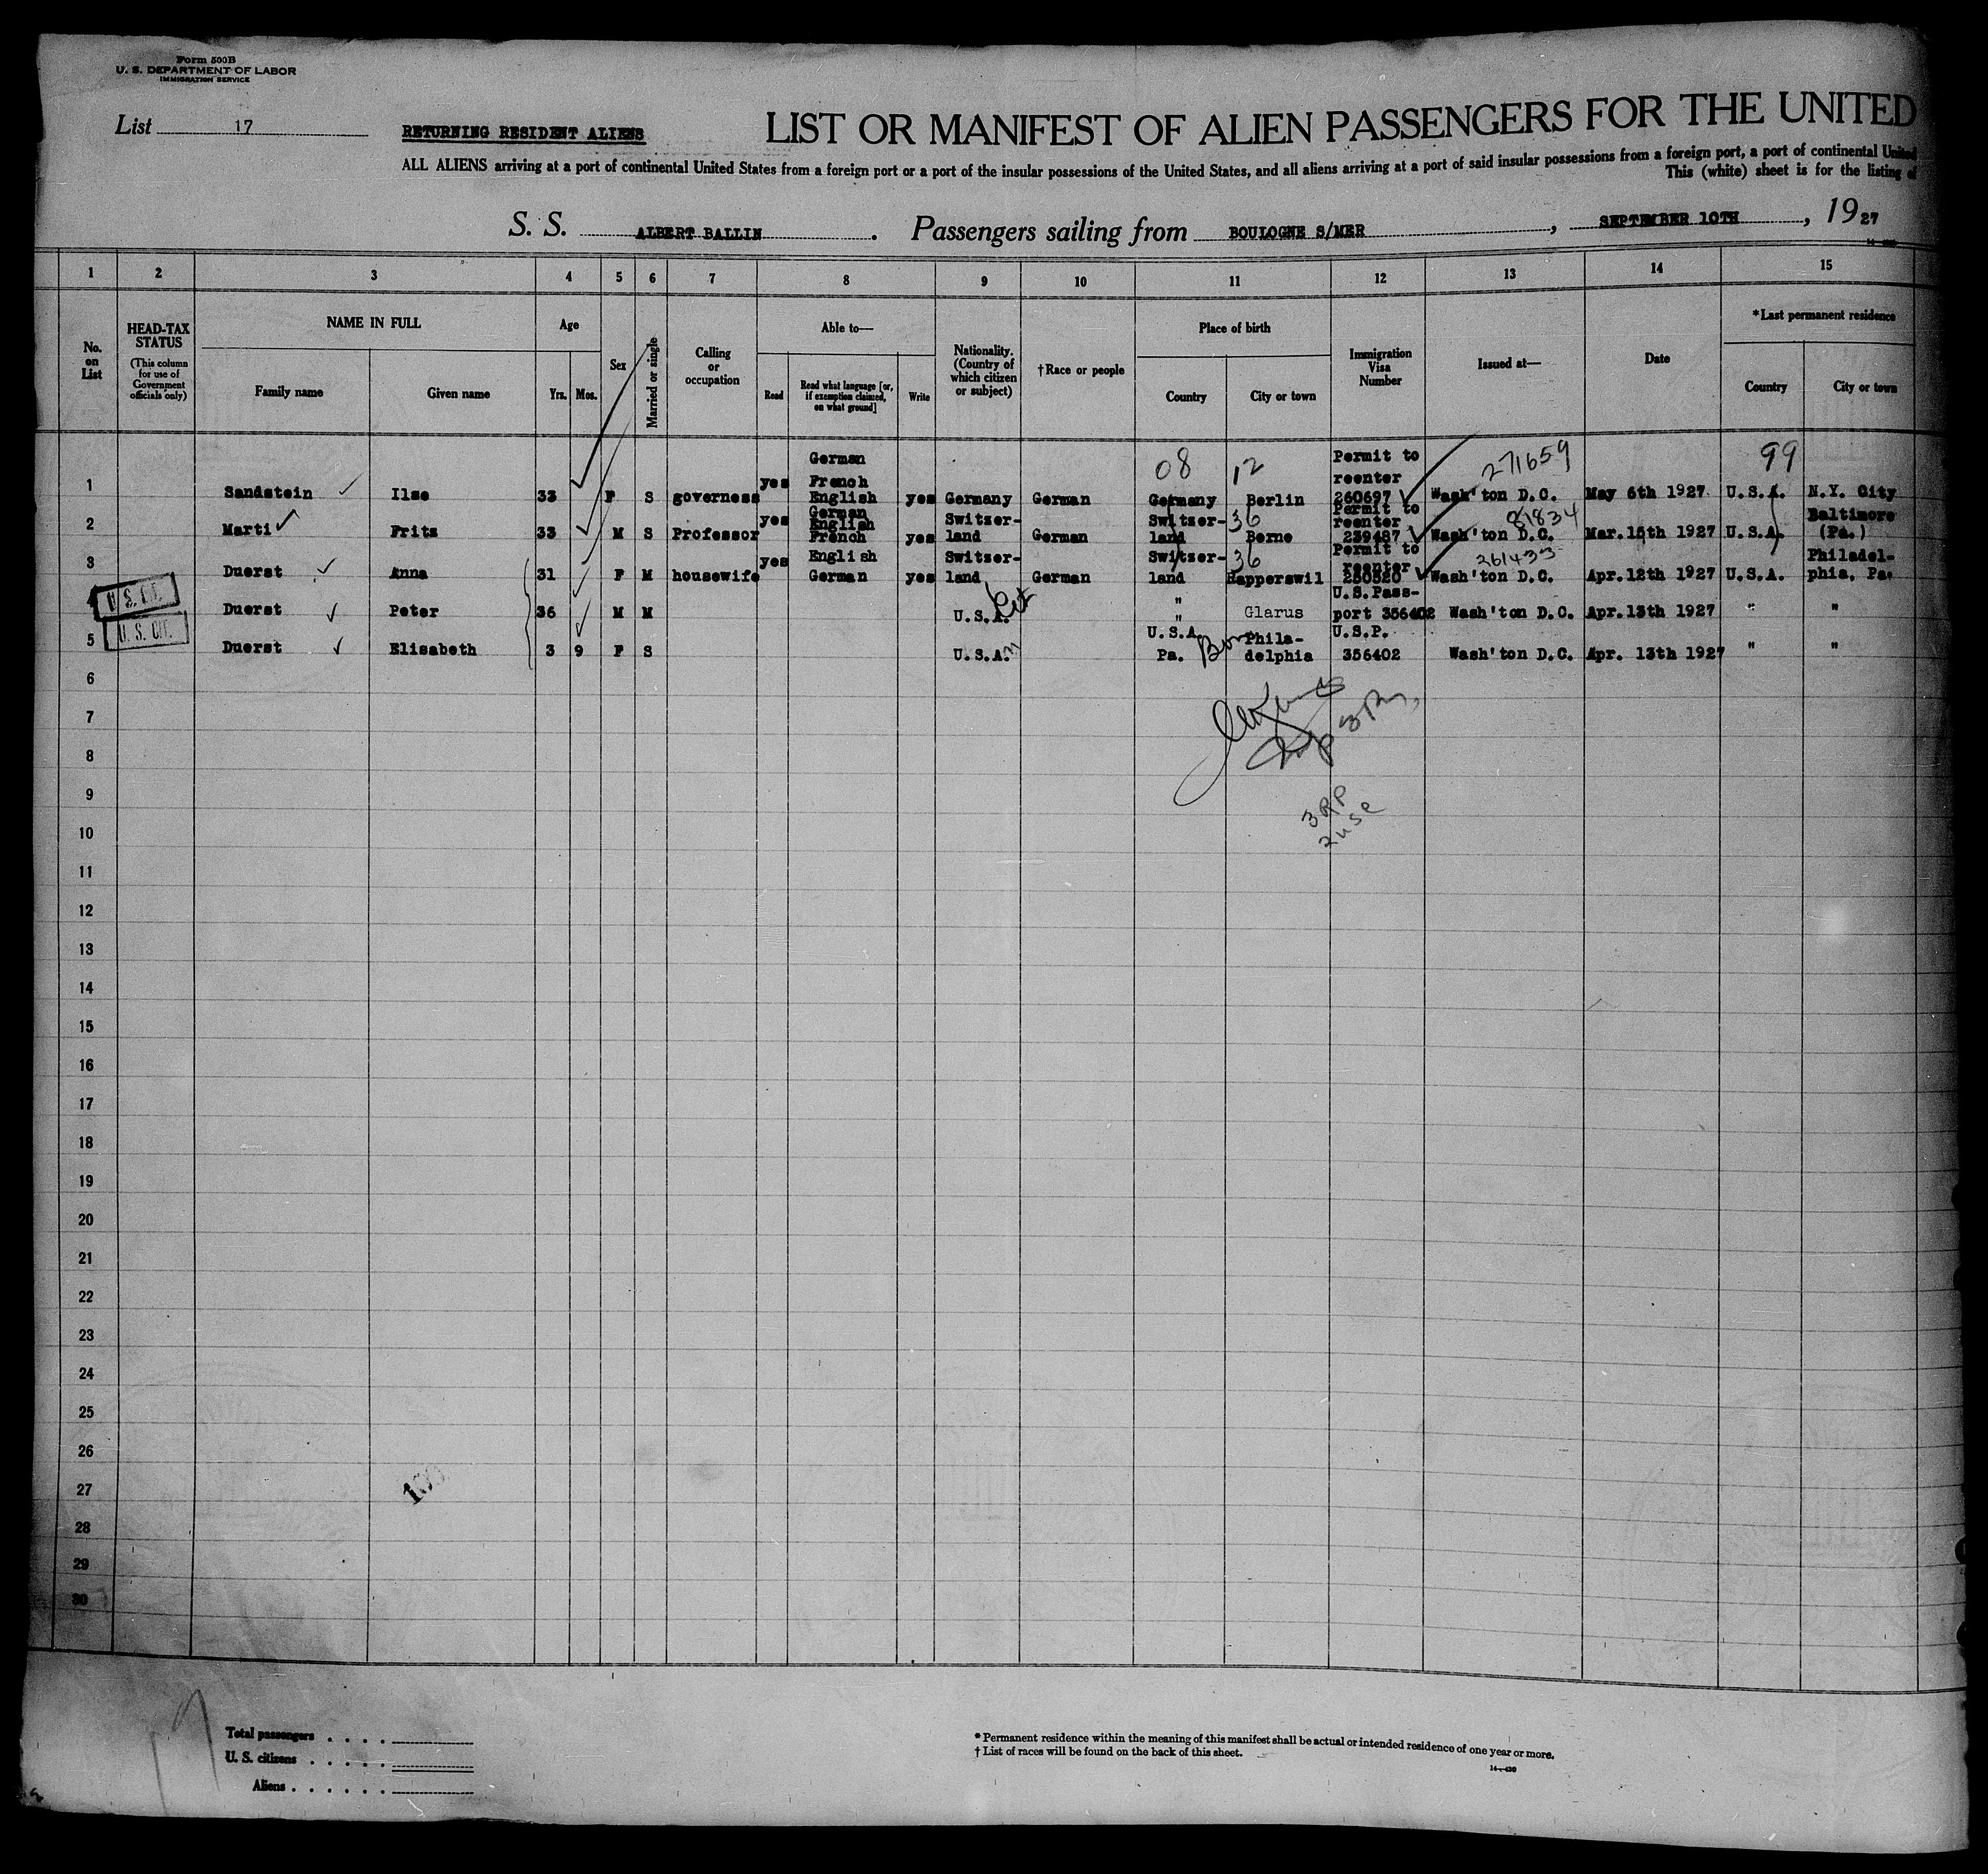 Form 500B
U. S. DEPARTMENT OF LABOR
IMMIGRATION SERVICE
List 17
RETURNING RESIDENT ALIENS
LIST OR MANIFEST OF ALIEN PASSENGERS FOR THE UNITED
ALL ALIENS arriving at a port of continental United States from a foreign port or a port of the insular possessions of the United States, and all aliens arriving at a port of said insular possessions from a foreign port, a port of continental United
This (white) sheet is for the listing of
S. S. ALBERT BALLIN. Passengers sailing from BOULOGNE S/MER, SEPTEMBER 10TH, 1927
1 2 3 4 5 6 7 8 9 10 11 12 13 14 15
No. on List
HEAD-TAX STATUS
(This column for use of Government officials only)
NAME IN FULL
Family name
Given name
Age
Yrs.
Mos.
Sex
Married or single
Calling or occupation
Able to—
Read
Read what language [or, if exemption claimed, on what ground]
Write
Nationality. (Country of which citizen or subject)
†Race or people
Place of birth
Country
City or town
Immigration Visa Number
Issued at—
Date
*Last permanent residence
Country
City or town
1 Sandstein Ilse 33 F S governess yes German French English yes Germany German 08 Germany 12 Berlin Permit to reenter 260697 271659 Wash'ton D.C. May 6th 1927 99 U.S.A. N.Y. City
2 Marti Fritz 33 M S Professor yes German English French yes Switzer-land German Switzer-land 36 Berne Permit to reenter 239487 81834 Wash'ton D.C. Mar.15th 1927 U.S.A. Baltimore (Pa.)
3 Duerst Anna 31 F M housewife yes English German yes Switzer-land German Switzer-land 36 Rapperswil Permit to reenter 250520 261433 Wash'ton D.C. Apr.12th 1927 U.S.A. Philadel-phia, Pa.
U. S. CIT.
4 Duerst Peter 36 M M U.S.A. Cit " " Glarus U.S.Pass-port 356402 Wash'ton D.C. Apr.13th 1927 " "
U. S. CIT.
5 Duerst Elisabeth 3 9 F S U.S.A. " U.S.A. Pa. Born Phila-delphia U.S.P. 356402 Wash'ton D.C. Apr. 13th 1927 " "
6
7
8
9
3 RP
2 USC
10
11
12
13
14
15
16
17
18
19
20
21
22
23
24
25
26
27
28
29
30
Total passengers
U. S. citizens
Aliens
* Permanent residence within the meaning of this manifest shall be actual or intended residence of one year or more.
† List of races will be found on the back of this sheet.
14—430